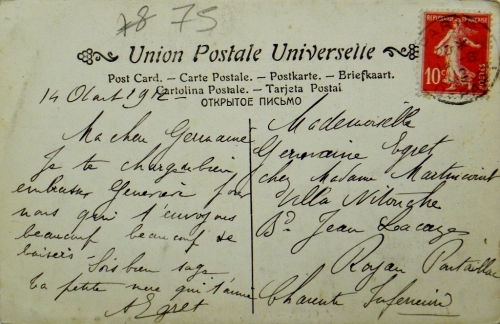 78 75
Union Postale Universelle
Post Card. – Carte Postale. – Postkarte. – Briefkaart.
Cartolina Postale. – Tarjeta Postal
ОТКРЫТОЕ ПИСЬМО
REPUBLIQUE FRANÇAISE
10c
14 Août 1912
Ma chère Germaine
Je te charge bien
embrasser Geneviève pour
nous qui t'envoyons
beaucoup beaucoup de
baisers. Sois bien sage
ta petite mère qui t'aime
A Egret
Mademoiselle
Germaine Egret
chez Madame Martincourt
Villa
Bd Jean Lacaze
Royan Pontaillac
Charente Inférieure